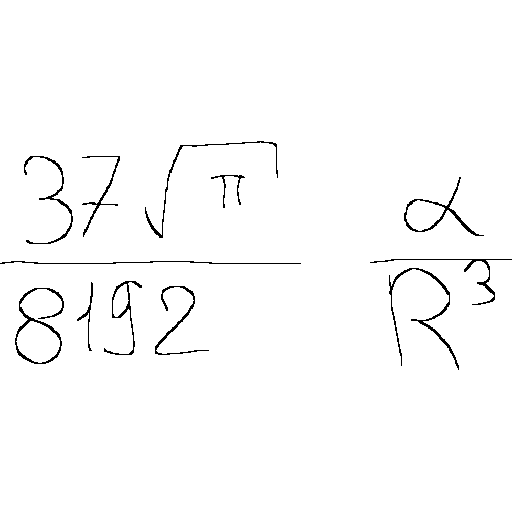 37√π α
8192 R³